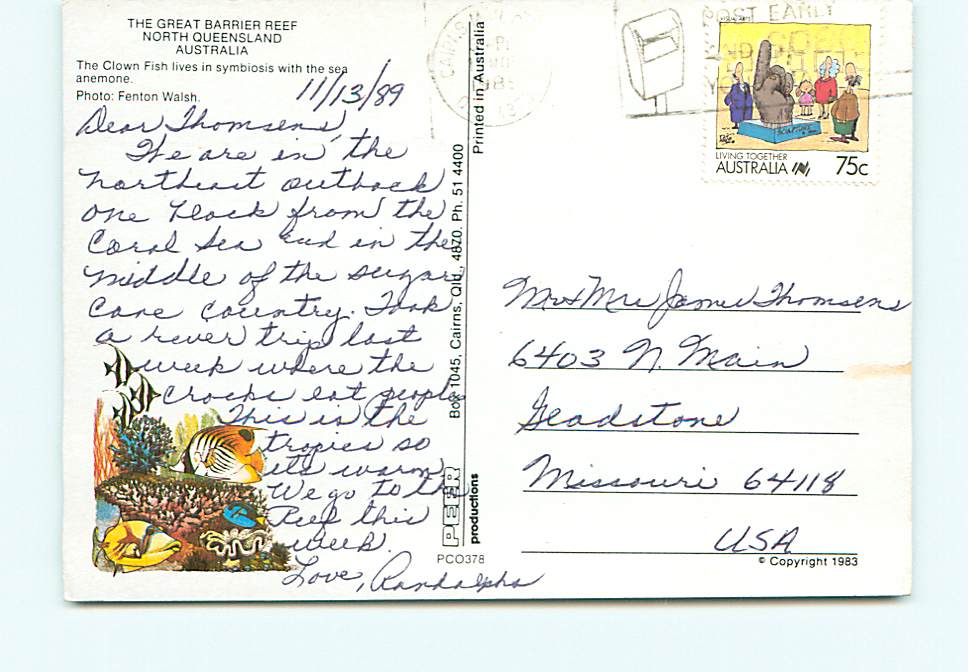 THE GREAT BARRIER REEF
NORTH QUEENSLAND
AUSTRALIA
The Clown Fish lives in symbiosis with the sea
anemone.
Photo: Fenton Walsh.
11/13/89
Dear Thomsens,
We are in the
northeast outback
one block from the
Coral Sea and in the
middle of the sugar
cane country. Took
a river trip last
week where the
crocks eat people
This is the
tropics so
its warm
We go to the
Reef this
week.
Love, Randolphs
PEER
productions
Box 1045, Cairns, Qld., 4870. Ph. 51 4400
Printed in Australia
PCO378
POST EARLY
LIVING TOGETHER
AUSTRALIA 75c
Mr & Mrs James Thomsens
6403 N. Main
Gladstone
Missouri 64118
USA
© Copyright 1983